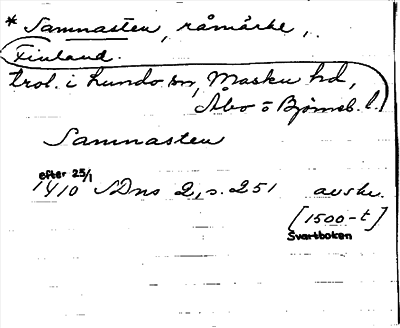 * Samnasten, råmärke,
Finland.
trol. i Lundo sn, Masku hd,
Åbo o Björneb. l.
Samnasten
efter 25/1
1410 SDns 2, s. 251 avskr.
[1500-t]
Svartboken